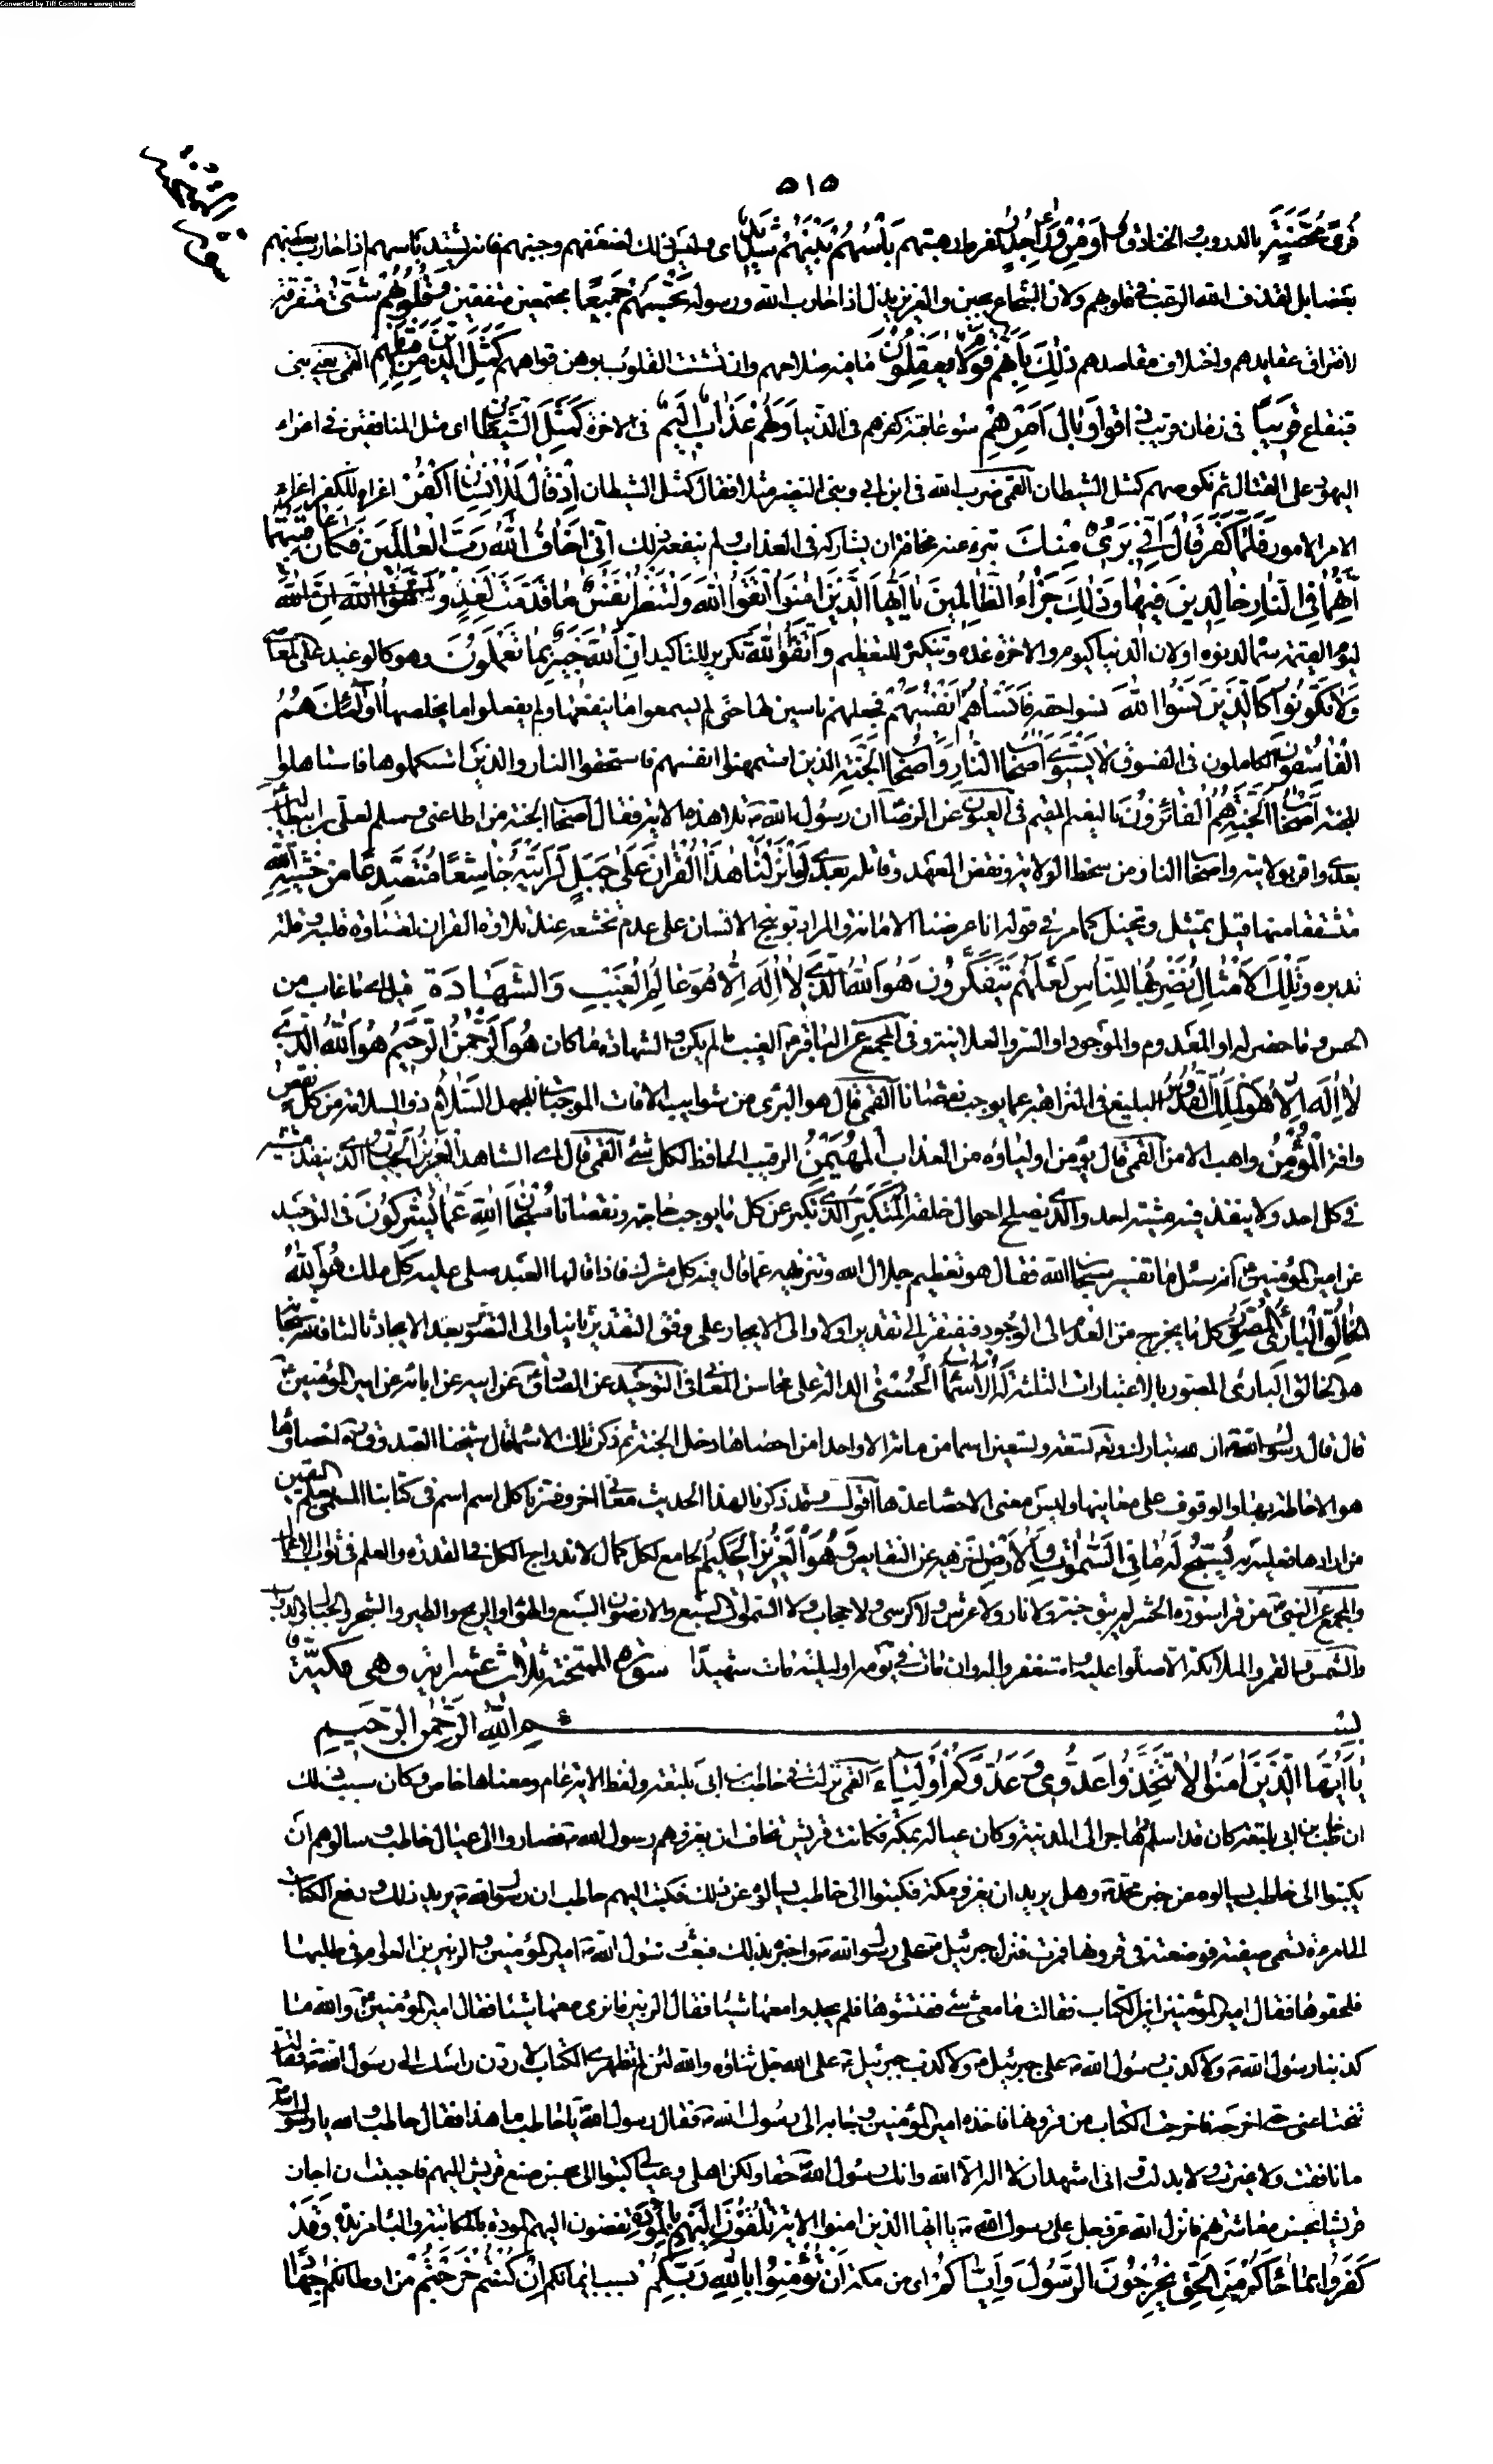 Converted by Tiff Combine - unregistered
٥١٥
قُرًى مُحَصَّنَةٍ بالدروب والخنادق أَوْ مِنْ وَرَاءِ جُدُرٍ لفرط رهبتهم بَأْسُهُمْ بَيْنَهُمْ شَدِيدٌ اى وليس ذلك لضعفهم وجبنهم فانه يشتد باسهم اذا حارب بعضهم
بعضا بل لقذف الله الرعب فى قلوبهم ولان الشجاع يجبن والعزيز يذل اذا حارب الله ورسوله تَحْسَبُهُمْ جَمِيعًا مجتمعين متفقين وَقُلُوبُهُمْ شَتَّىٰ متفرقة
لافتراق عقايدهم واختلاف مقاصدهم ذٰلِكَ بِأَنَّهُمْ قَوْمٌ لَا يَعْقِلُونَ ما فيه صلاحهم وان تشتت القلوب يوهن قواهم كَمَثَلِ الَّذِينَ مِنْ قَبْلِهِمْ القمى يعنى بنى
قينقاع قَرِيبًا فى زمان قريب ذَاقُوا وَبَالَ أَمْرِهِمْ سوء عاقبة كفرهم فى الدنيا وَلَهُمْ عَذَابٌ أَلِيمٌ فى الاخرة كَمَثَلِ الشَّيْطَانِ اى مثل المنافقين فى اغراء
اليهود على القتال ثم نكوصهم كمثل الشيطان القمى ضرب الله فى ابن ابى وبنى النضير مثلا فقال كمثل الشيطان إِذْ قَالَ لِلْإِنْسَانِ اكْفُرْ اغراه للكفر اغراء
الامر المامور فَلَمَّا كَفَرَ قَالَ إِنِّي بَرِيءٌ مِنْكَ تبرء عنه مخافة ان يشاركه فى العذاب ولم ينفعه ذلك إِنِّي أَخَافُ اللهَ رَبَّ الْعَالَمِينَ فَكَانَ عَاقِبَتَهُمَا
أَنَّهُمَا فِي النَّارِ خَالِدَيْنِ فِيهَا وَذٰلِكَ جَزَاءُ الظَّالِمِينَ يَا أَيُّهَا الَّذِينَ آمَنُوا اتَّقُوا اللهَ وَلْتَنْظُرْ نَفْسٌ مَا قَدَّمَتْ لِغَدٍ
ليوم القيمة سماه لدنوه او لان الدنيا كيوم والاخرة غده وتنكيره للتعظيم وَاتَّقُوا اللهَ تكرير للتاكيد إِنَّ اللهَ خَبِيرٌ بِمَا تَعْمَلُونَ وهو كالوعيد على المعاصى
وَلَا تَكُونُوا كَالَّذِينَ نَسُوا اللهَ نسوا حقه فَأَنْسَاهُمْ أَنْفُسَهُمْ فجعلهم ناسين لها حتى لم يسمعوا ما ينفعها ولم يفعلوا ما يخلصها أُولٰئِكَ هُمُ
الْفَاسِقُونَ الكاملون فى الفسوق لَا يَسْتَوِي أَصْحَابُ النَّارِ وَأَصْحَابُ الْجَنَّةِ الذين استمهنوا انفسهم فاستحقوا النار والذين استكملوها فاستاهلوا
للجنة أَصْحَابُ الْجَنَّةِ هُمُ الْفَائِزُونَ بالنعيم المقيم فى العيون عن الرضا ان رسول الله ص تلا هذه الاية فقال اصحاب الجنة من اطاعنى وسلم لعلى بن ابيطالب
بعدى واقر بولايته واصحاب النار من سخط الولاية ونقض العهد وقاتله بعدى لَوْ أَنْزَلْنَا هٰذَا الْقُرْآنَ عَلَىٰ جَبَلٍ لَرَأَيْتَهُ خَاشِعًا مُتَصَدِّعًا مِنْ خَشْيَةِ اللهِ
متشققا منها قيل تمثيل وتخييل كما مر فى قوله انا عرضنا الامانة والمراد توبيخ الانسان على عدم تخشعه عند تلاوة القران لقساوة قلبه وقلة
تدبره وَتِلْكَ الْأَمْثَالُ نَضْرِبُهَا لِلنَّاسِ لَعَلَّهُمْ يَتَفَكَّرُونَ هُوَ اللهُ الَّذِي لَا إِلٰهَ إِلَّا هُوَ عَالِمُ الْغَيْبِ وَالشَّهَادَةِ قيل اى ما غاب من
الحس وما حضر له او المعدوم والموجود او السر والعلانية وفى المجمع عن الباقر ع الغيب ما لم يكن والشهادة ما كان هُوَ الرَّحْمٰنُ الرَّحِيمُ هُوَ اللهُ الَّذِي
لَا إِلٰهَ إِلَّا هُوَ الْمَلِكُ الْقُدُّوسُ البليغ فى النزاهة عما يوجب نقصانا القمى قال هو البرى من شوايب الافات الموجبات للجهل السَّلَامُ ذو السلامة من كل نقص
وافة الْمُؤْمِنُ واهب الامن القمى قال يؤمن اولياؤه من العذاب الْمُهَيْمِنُ الرقيب الحافظ لكل شئ القمى قال اى الشاهد الْعَزِيزُ الْجَبَّارُ الذى ينفذ مشيته
فى كل احد ولا ينفذ فيه مشية احد والذى يصلح احوال خلقه الْمُتَكَبِّرُ الذى تكبر عن كل ما يوجب حاجة ونقصانا سُبْحَانَ اللهِ عَمَّا يُشْرِكُونَ فى التوحيد
عن امير المؤمنين ع انه سئل ما تفسير سبحان الله فقال هو تعظيم جلال الله وتنزيهه عما قال فيه كل مشرك فاذا قالها العبد صلى عليه كل ملك هُوَ اللهُ
الْخَالِقُ الْبَارِئُ الْمُصَوِّرُ كل ما يخرج من العدم الى الوجود فيفتقر الى تقديره اولا والى الايجاد على وفق التقدير ثانيا والى التصوير بعد الايجاد ثالثا فالله سبحانه
هو الخالق البارئ المصور بالاعتبارات الثلثة لَهُ الْأَسْمَاءُ الْحُسْنَىٰ الدالة على محاسن المعانى فى التوحيد عن الصادق ع عن ابيه عن ابائه عن امير المؤمنين ع
قال قال رسول الله ص ان لله تبارك وتعالى تسعة وتسعين اسما من مائة الا واحدا من احصاها دخل الجنة ثم ذكر تلك الاسماء قال شيخنا الصدوق ره احصاؤها
هو الاحاطة بها والوقوف على معانيها وليس معنى الاحصاء عدها اقول وقد ذكرنا لهذا الحديث معنى اخر وفسرنا كل اسم اسم فى كتابنا المسمى بعلم اليقين
من ارادها فعليه به يُسَبِّحُ لَهُ مَا فِي السَّمٰوَاتِ وَالْأَرْضِ لتنزهه عن النقايص وَهُوَ الْعَزِيزُ الْحَكِيمُ الجامع لكل كمال لاندراج الكل فى القدرة والعلم فى ثواب الاعمال
والمجمع عن النبى ص من قرا سورة الحشر لم يبق جنة ولا نار ولا عرش ولا كرسى ولا حجاب ولا السموات السبع والارضون السبع والهواء والريح والطير والشجر والجبال والدواب
والشمس والقمر والملائكة الا صلوا عليه واستغفروا له وان مات فى يومه او ليلته مات شهيدًا سورة الممتحنة ثلاث عشر اية وهى مكية
بِسْمِ اللهِ الرَّحْمٰنِ الرَّحِيمِ
يَا أَيُّهَا الَّذِينَ آمَنُوا لَا تَتَّخِذُوا عَدُوِّي وَعَدُوَّكُمْ أَوْلِيَاءَ القمى نزلت فى حاطب بن ابى بلتعة ولفظ الاية عام ومعناها خاص وكان سبب ذلك
ان حاطب بن ابى بلتعة كان قد اسلم وهاجر الى المدينة وكان عياله بمكة فكانت قريش تخاف ان يغزوهم رسول الله ص فصاروا الى عيال حاطب وسالوهم ان
يكتبوا الى حاطب يسالوه عن خبر محمد ص وهل يريد ان يغزو مكة فكتبوا الى حاطب يسالونه عن ذلك فكتب اليهم حاطب ان رسول الله ص يريد ذلك ودفع الكتاب
الى امرءة تسمى صفية فوضعته فى قرونها فمرت فنزل جبرئيل ع على رسول الله ص واخبره بذلك فبعث رسول الله ص امير المؤمنين والزبير بن العوام فى طلبها
فلحقوها فقال امير المؤمنين اين الكتاب فقالت ما معى شئ ففتشوها فلم يجدوا معها شيئا فقال الزبير ما نرى معها شيئا فقال امير المؤمنين ع والله ما
كذبنا رسول الله ص ولا كذب رسول الله ص على جبرئيل ع ولا كذب جبرئيل ع على الله جل ثناؤه والله لئن لم تظهرى الكتاب لاردن راسك الى رسول الله ص فقالت
تنحيا عنى حتى اخرجه فاخرجت الكتاب من قرونها فاخذه امير المؤمنين وجاء به الى رسول الله ص فقال رسول الله ص يا حاطب ما هذا فقال حاطب والله يا رسول الله
ما نافقت ولا غيرت ولا بدلت وانى اشهد ان لا اله الا الله وانك رسول الله حقا ولكن اهلى وعيالى كتبوا الى بحسن صنع قريش اليهم فاحببت ان اجازى
قريشا بحسن معاشرتهم فانزل الله عز وجل على رسول الله ص يا ايها الذين امنوا الاية تُلْقُونَ إِلَيْهِمْ بِالْمَوَدَّةِ تفضون اليهم المودة بالمكاتبة والباء مزيدة وَقَدْ
كَفَرُوا بِمَا جَاءَكُمْ مِنَ الْحَقِّ يُخْرِجُونَ الرَّسُولَ وَإِيَّاكُمْ اى من مكة أَنْ تُؤْمِنُوا بِاللهِ رَبِّكُمْ بسبب ايمانكم إِنْ كُنْتُمْ خَرَجْتُمْ من اوطانكم جِهَادًا